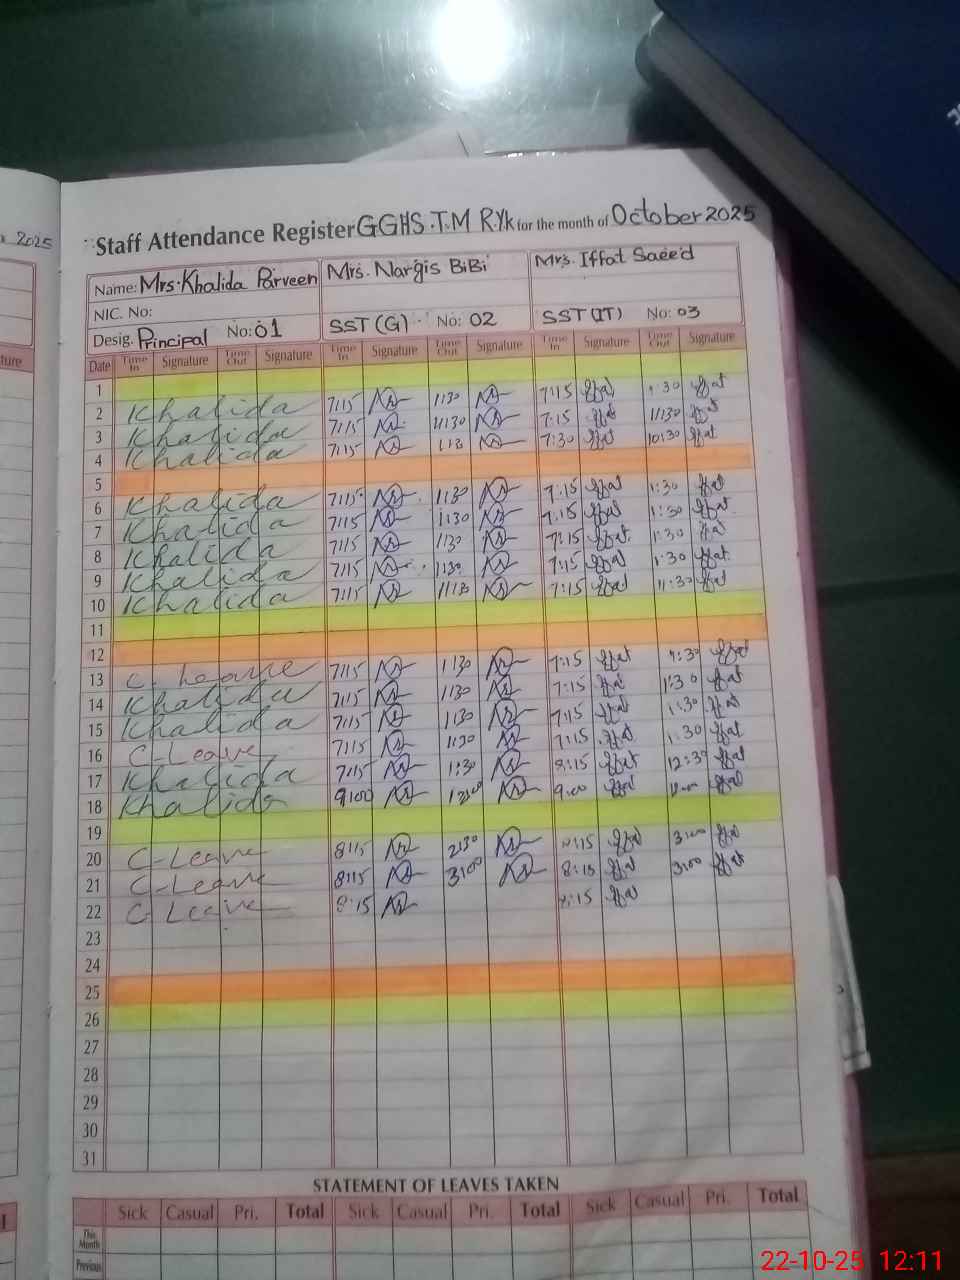 2025
Staff Attendance Register GGHS.T.M R.Yk for the month of October 2025
Name: Mrs. Khalida Parveen Mrs. Nargis BiBi Mrs. Iffat Saeed
NIC. No:
Desig. Principal No: 01 SST (G) No: 02 SST (IT) No: 03
Date Time In Signature Time Out Signature Time In Signature Time Out Signature Time In Signature Time Out Signature
1
2 Khalida 7:15 1:30 7:15 1:30 Iffat
3 Khalida 7:15 11:30 7:15 Iffat 11:30 Iffat
4 Khalida 7:15 7:30 Iffat 10:30 Iffat
5
6 Khalida 7:15 1:30 7:15 Iffat 1:30 Iffat
7 Khalida 7:15 1:30 7:15 Iffat 1:30 Iffat
8 Khalida 7:15 1:30 7:15 Iffat 1:30 Iffat
9 Khalida 7:15 1:30 7:15 Iffat 1:30 Iffat
10 Khalida 7:15 7:15 Iffat 11:30 Iffat
11
12
13 C. Leave 7:15 1:30 7:15 Iffat 1:30 Iffat
14 Khalida 7:15 1:30 7:15 Iffat 1:30 Iffat
15 Khalida 7:15 1:30 7:15 Iffat 1:30 Iffat
16 C-Leave 7:15 1:30 7:15 Iffat 1:30 Iffat
17 Khalida 7:15 1:30 8:15 Iffat 12:30 Iffat
18 Khalida 9:00 9:00 Iffat Iffat
19
20 C-Leave 8:15 2:30 Iffat 3:00 Iffat
21 C-Leave 8:15 3:00 8:15 Iffat 3:00 Iffat
22 C Leave 8:15 8:15 Iffat
23
24
25
26
27
28
29
30
31
STATEMENT OF LEAVES TAKEN
Sick Casual Pri. Total Sick Casual Pri. Total Sick Casual Pri. Total
This Month
Previous
22-10-25 12:11